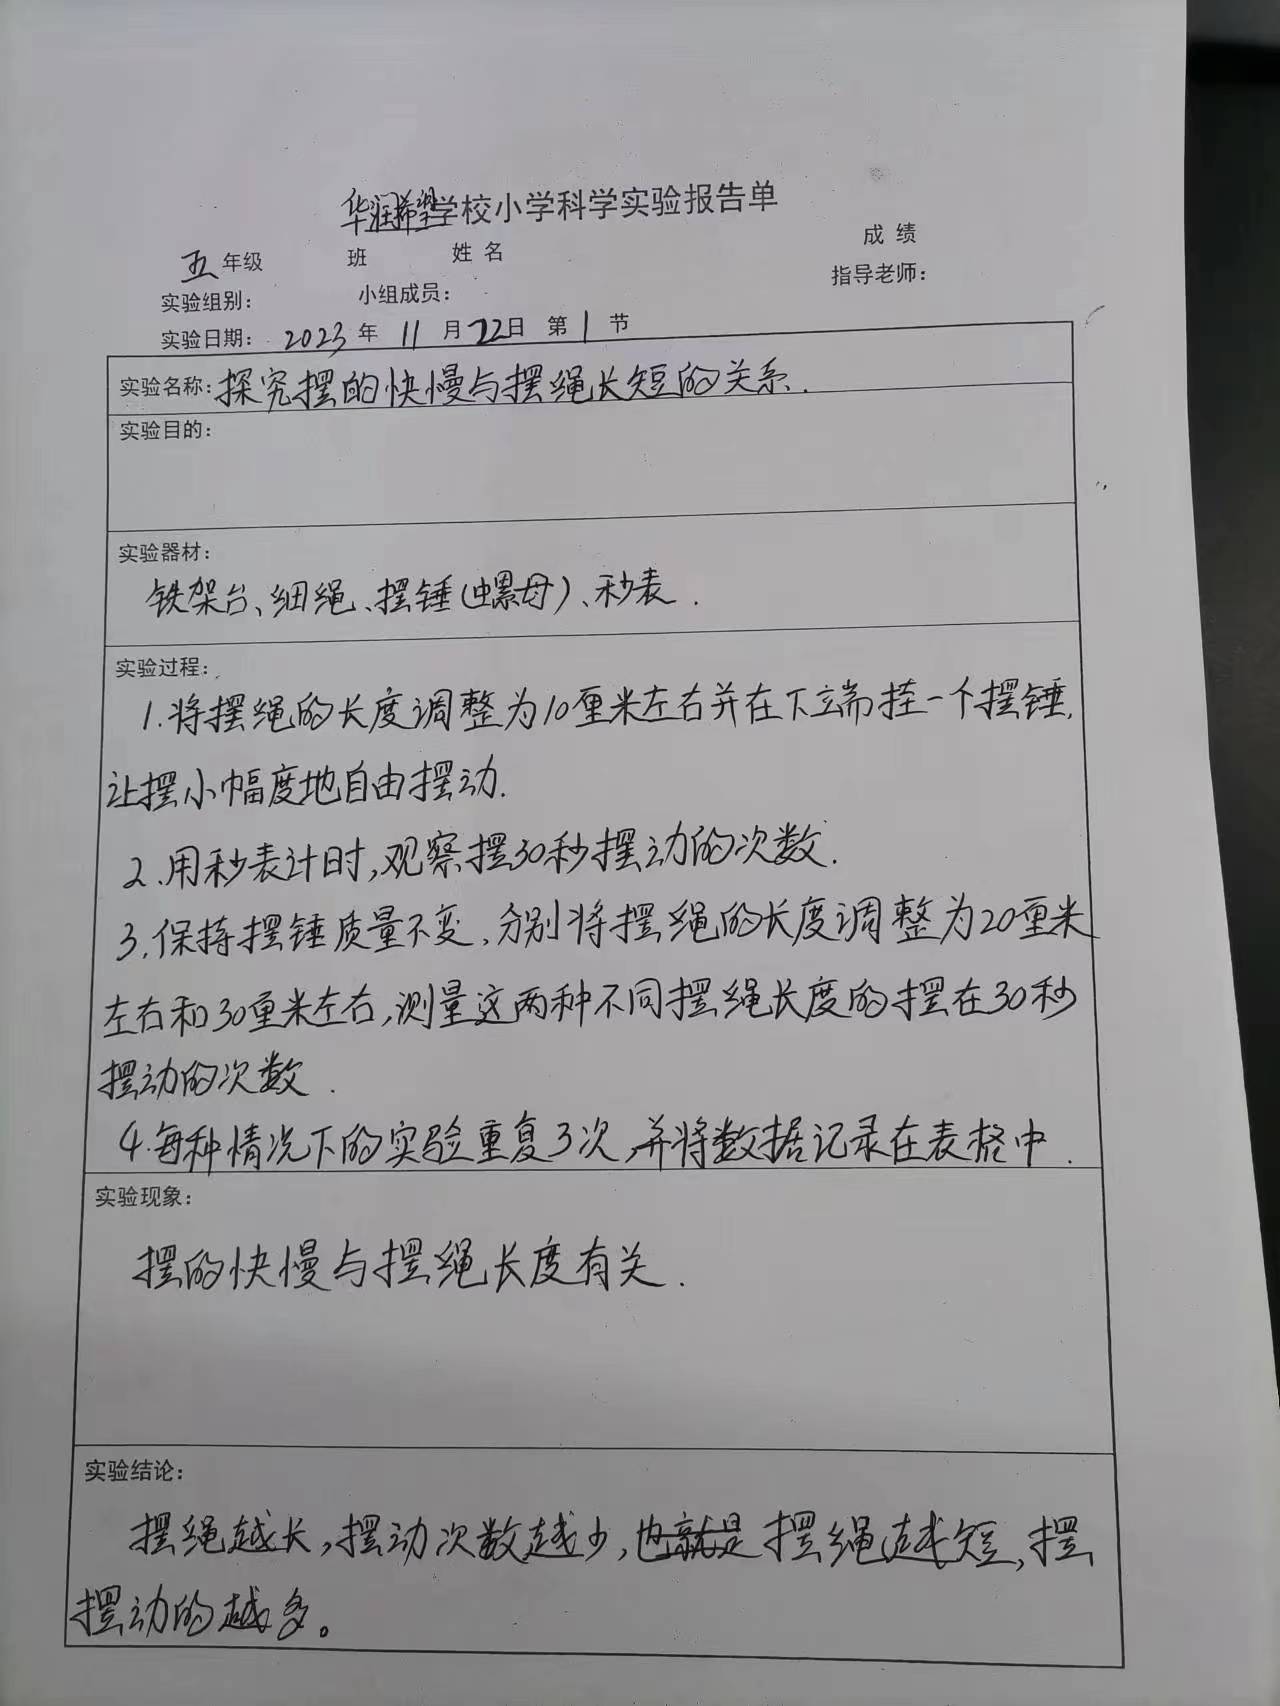 华润希望学校小学科学实验报告单
五年级 班 姓名 成绩
实验组别： 小组成员： 指导老师：
实验日期： 2023年 11月22日 第1节
实验名称：探究摆的快慢与摆绳长短的关系.
实验目的：
实验器材：
铁架台、细绳、摆锤(螺母)、秒表.
实验过程：
1.将摆绳的长度调整为10厘米左右并在下端挂一个摆锤,
让摆小幅度地自由摆动.
2.用秒表计时,观察摆30秒摆动的次数.
3.保持摆锤质量不变,分别将摆绳的长度调整为20厘米
左右和30厘米左右,测量这两种不同摆绳长度的摆在30秒
摆动的次数.
4.每种情况下的实验重复3次,并将数据记录在表格中.
实验现象：
摆的快慢与摆绳长度有关.
实验结论：
摆绳越长,摆动次数越少,也就是摆绳越短,摆
摆动的越多。